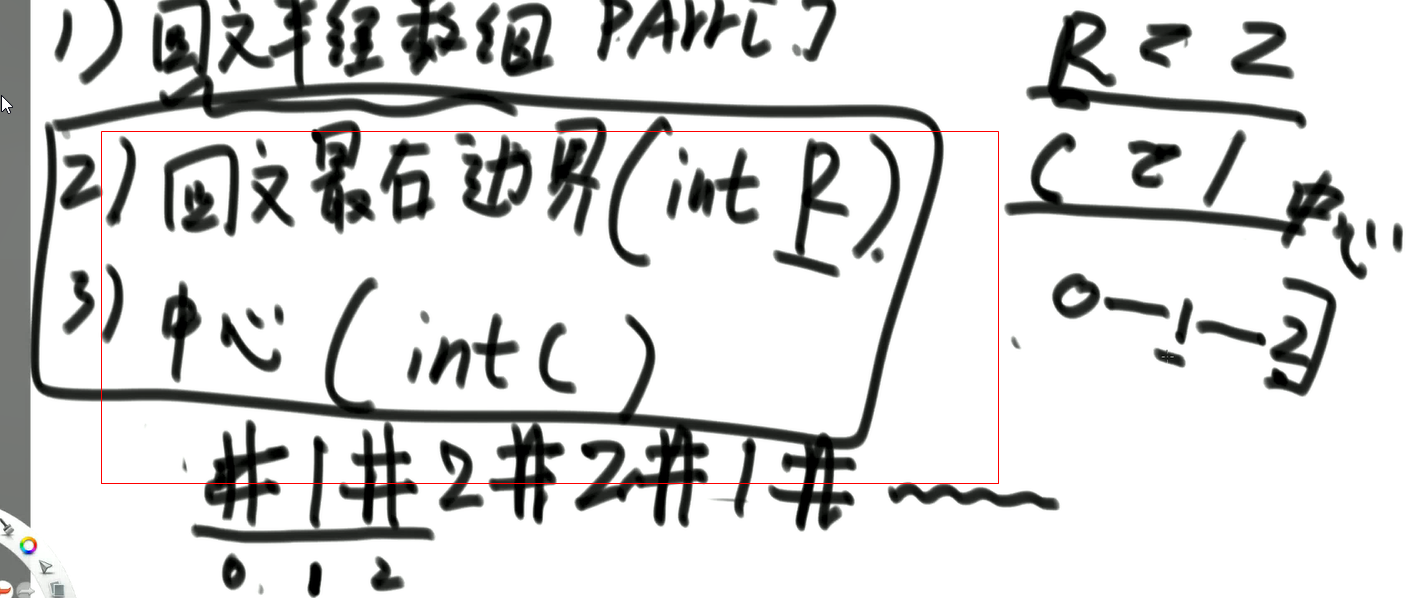 1) 回文半径数组 PArr[]
2) 回文最右边界(int R).
3) 中心(int C)
#1#2#2#1#
0 1 2
R = 2
C = 1 中心
0—1—2]